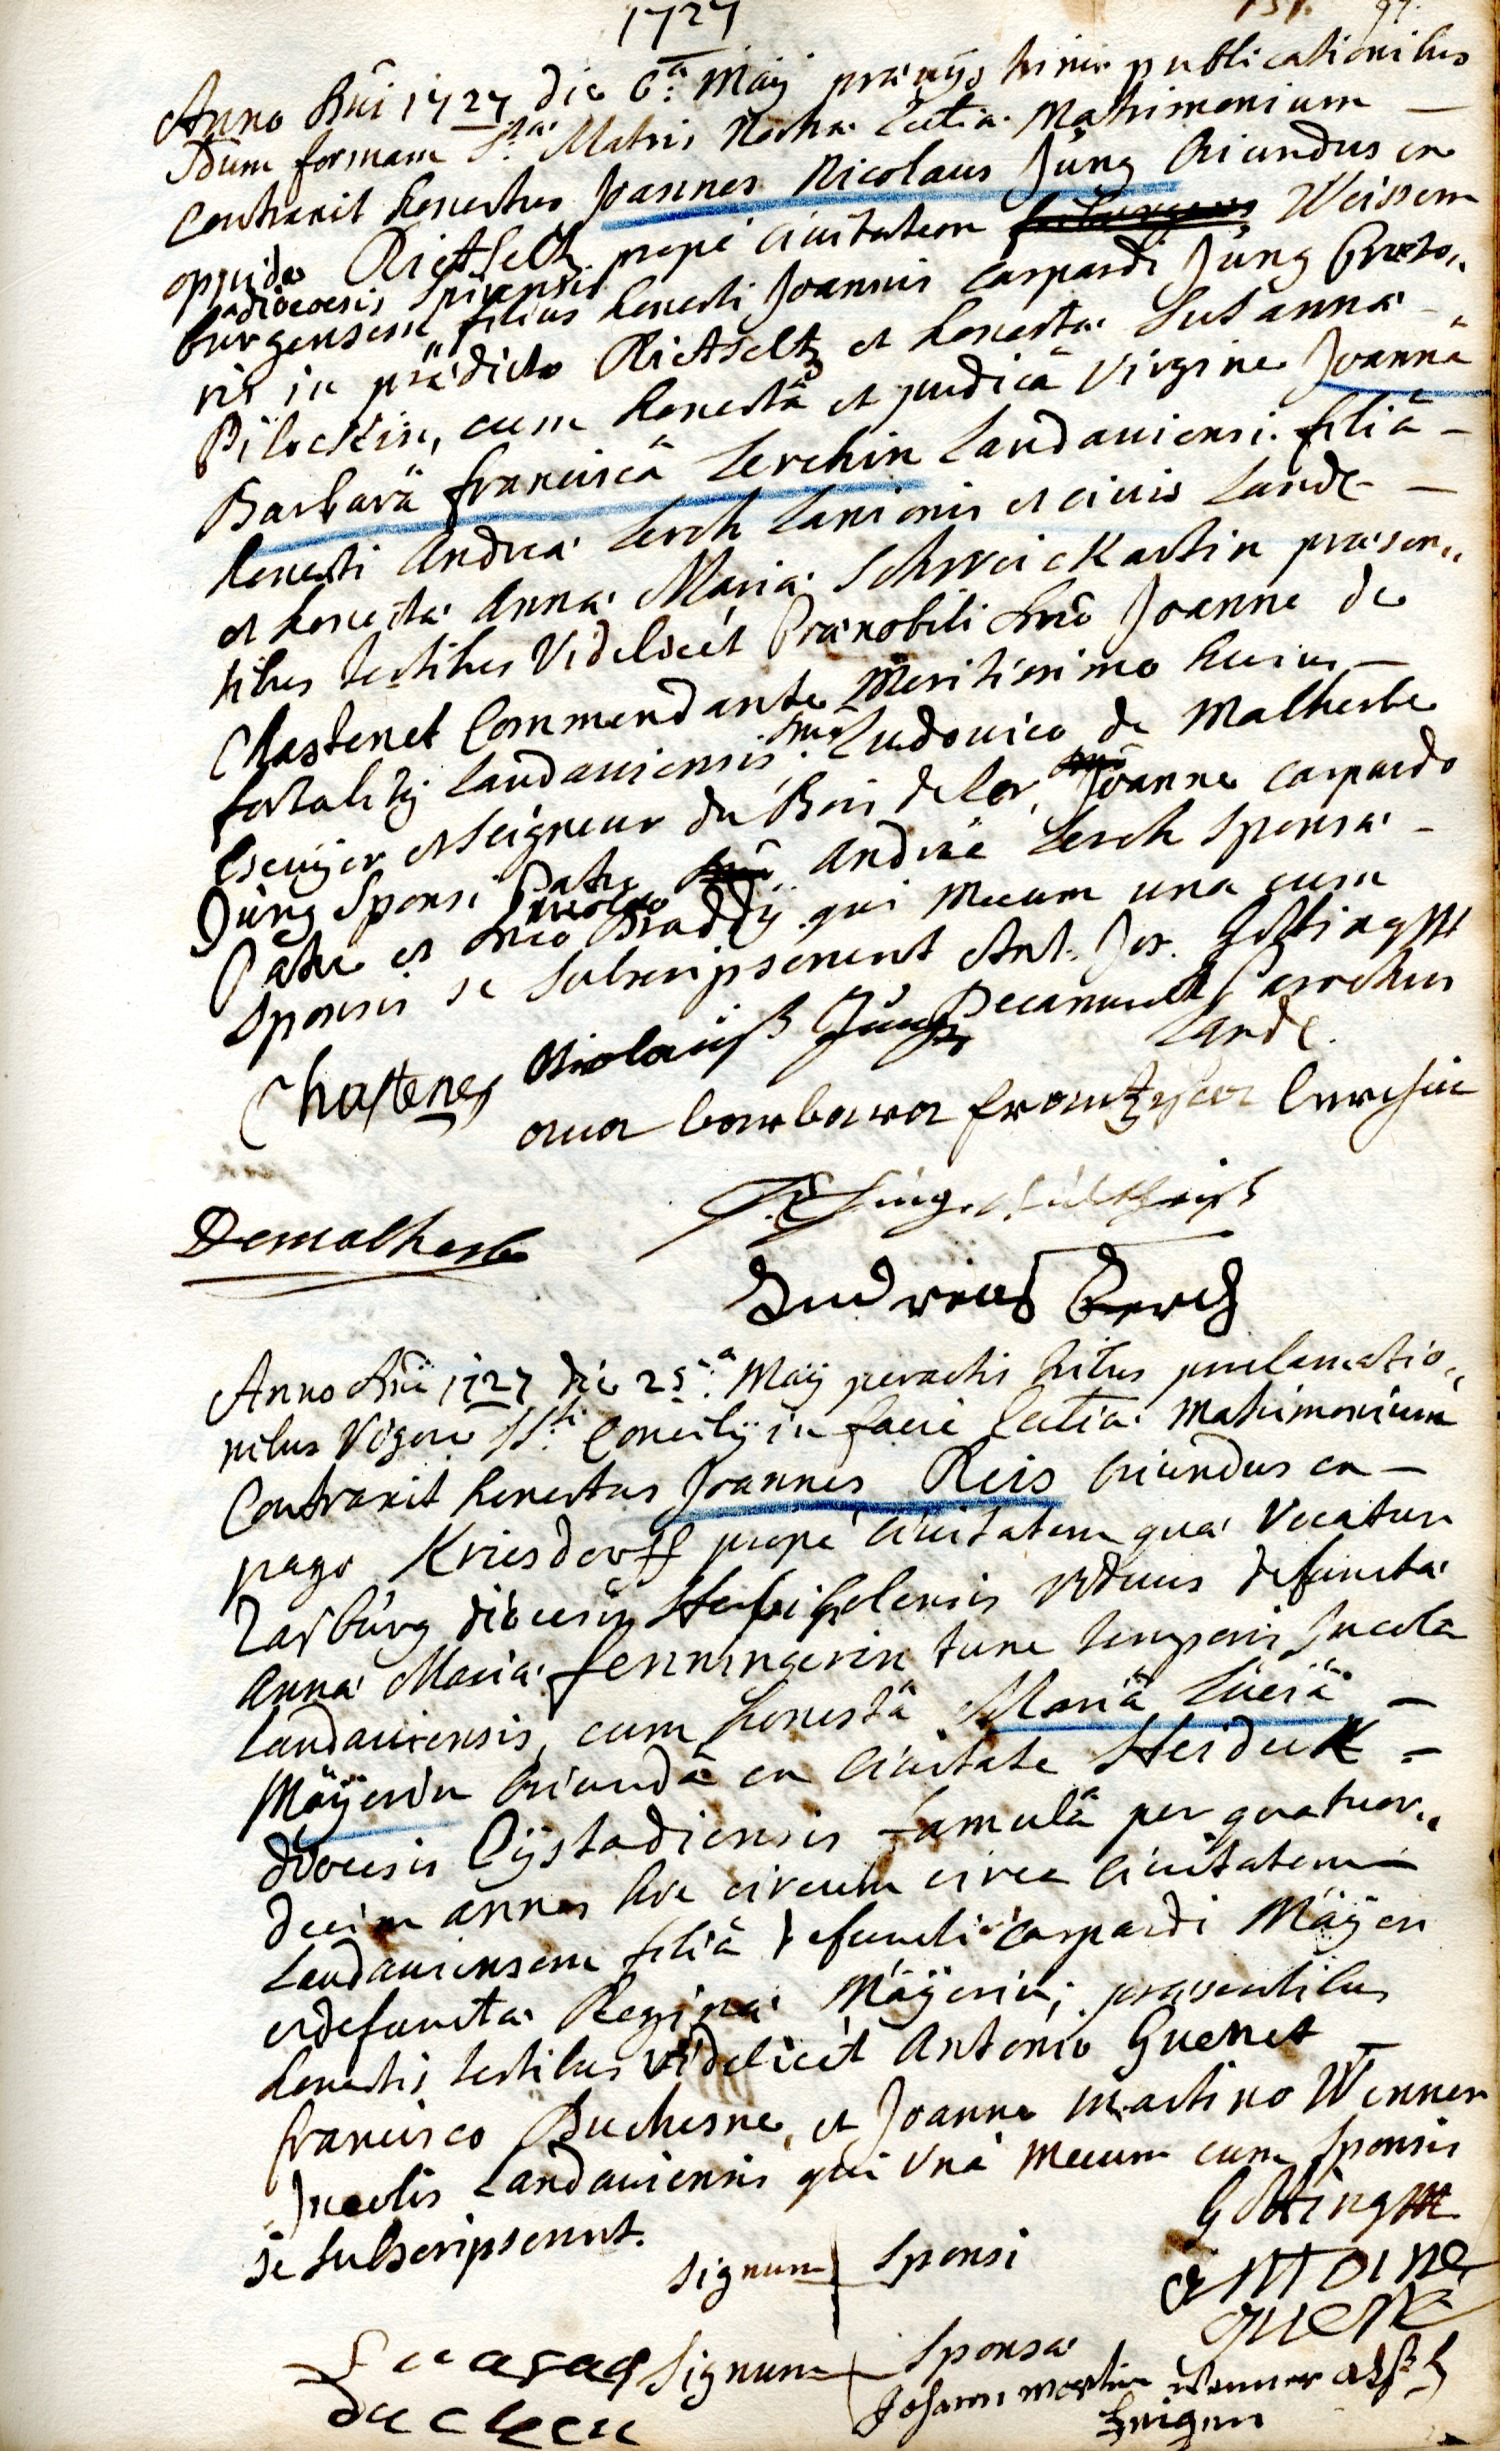 1727
131. 97.
Anno Dni 1727 die 6.ta Maij præviis trinis publicationibus
Scdum formam S.tæ Matris Nostræ Ecclæ Matrimonium —
Contraxit honestus Joannes Nicolaus Jung Oriundus ex
oppido Rietseltz propé civitatem Weissem
diœcesis Spirensis
burgensem filius honesti Joannis Caspardi Jung Præto„
ris in prædicto Rietseltz et honestæ Susannæ —
Pilockin, cum honestâ et pudicâ Virgine Joanna
Barbarâ franciscâ Lerchin Landaviensi filiâ —
honesti Andreæ Lerch Lanionis et civis Landæ —
et honestæ Annæ Mariæ Schweickartin præsen„
tibus testibus Videlicét Prænobili Dno Joanne de
Chastenet Commendante Meritissimo huius —
fortalitij Landaviensis, Dno Ludovico de Malherbe
Escuijer et Seigneur du Bois de lor, Joanne Caspardo
Jung Sponsi Patre Andreâ Lerch Sponsæ —
Patre et Dno Nicolao Braddij qui Mecum una cum
Sponsis se Subscripserunt Ant. Jos. Götting
Decanus et Parochus
Landæ.
Chastenet
Nicolauß Jung
ana barbara frantzisca lerchin
Jung Schultheiß
Demalherbe
Andreas Lerch
Anno Dni 1727 die 25.ta Maij peractis tribus proclamatio„
nibus Vigore Sti Concilij in facie Ecclæ Matrimonium
Contraxit honestus Joannes Reis Oriundus ex —
pago Kriesdorff propé civitatem quæ Vocatur
Lasburg diœcesis Herbipolensis Viduus defunctæ
Annæ Mariæ fenningerin tunc temporis Incola
Landaviensis, cum honestâ Mariâ Luciâ —
Mäÿerin Oriundâ ex Civitate Heideck —
diœcesis Eÿstadiensis famulâ per quatuor„
decim annos hic circum circa Civitatem —
Landaviensem filiâ defuncti Caspardi Mäÿer
et defunctæ Reginæ Mäÿerin, præsentibus
honestis testibus Videlicét Antonio Guenet —
francisco Duchesne, et Joanne Martino Wenner
Incolis Landaviensis qui Una Mecum cum Sponsis
se Subscripserunt.
Götting
Signum + Sponsi
antoine
guene
Signum + Sponsæ
Johann martin wenner alß
Zeigen